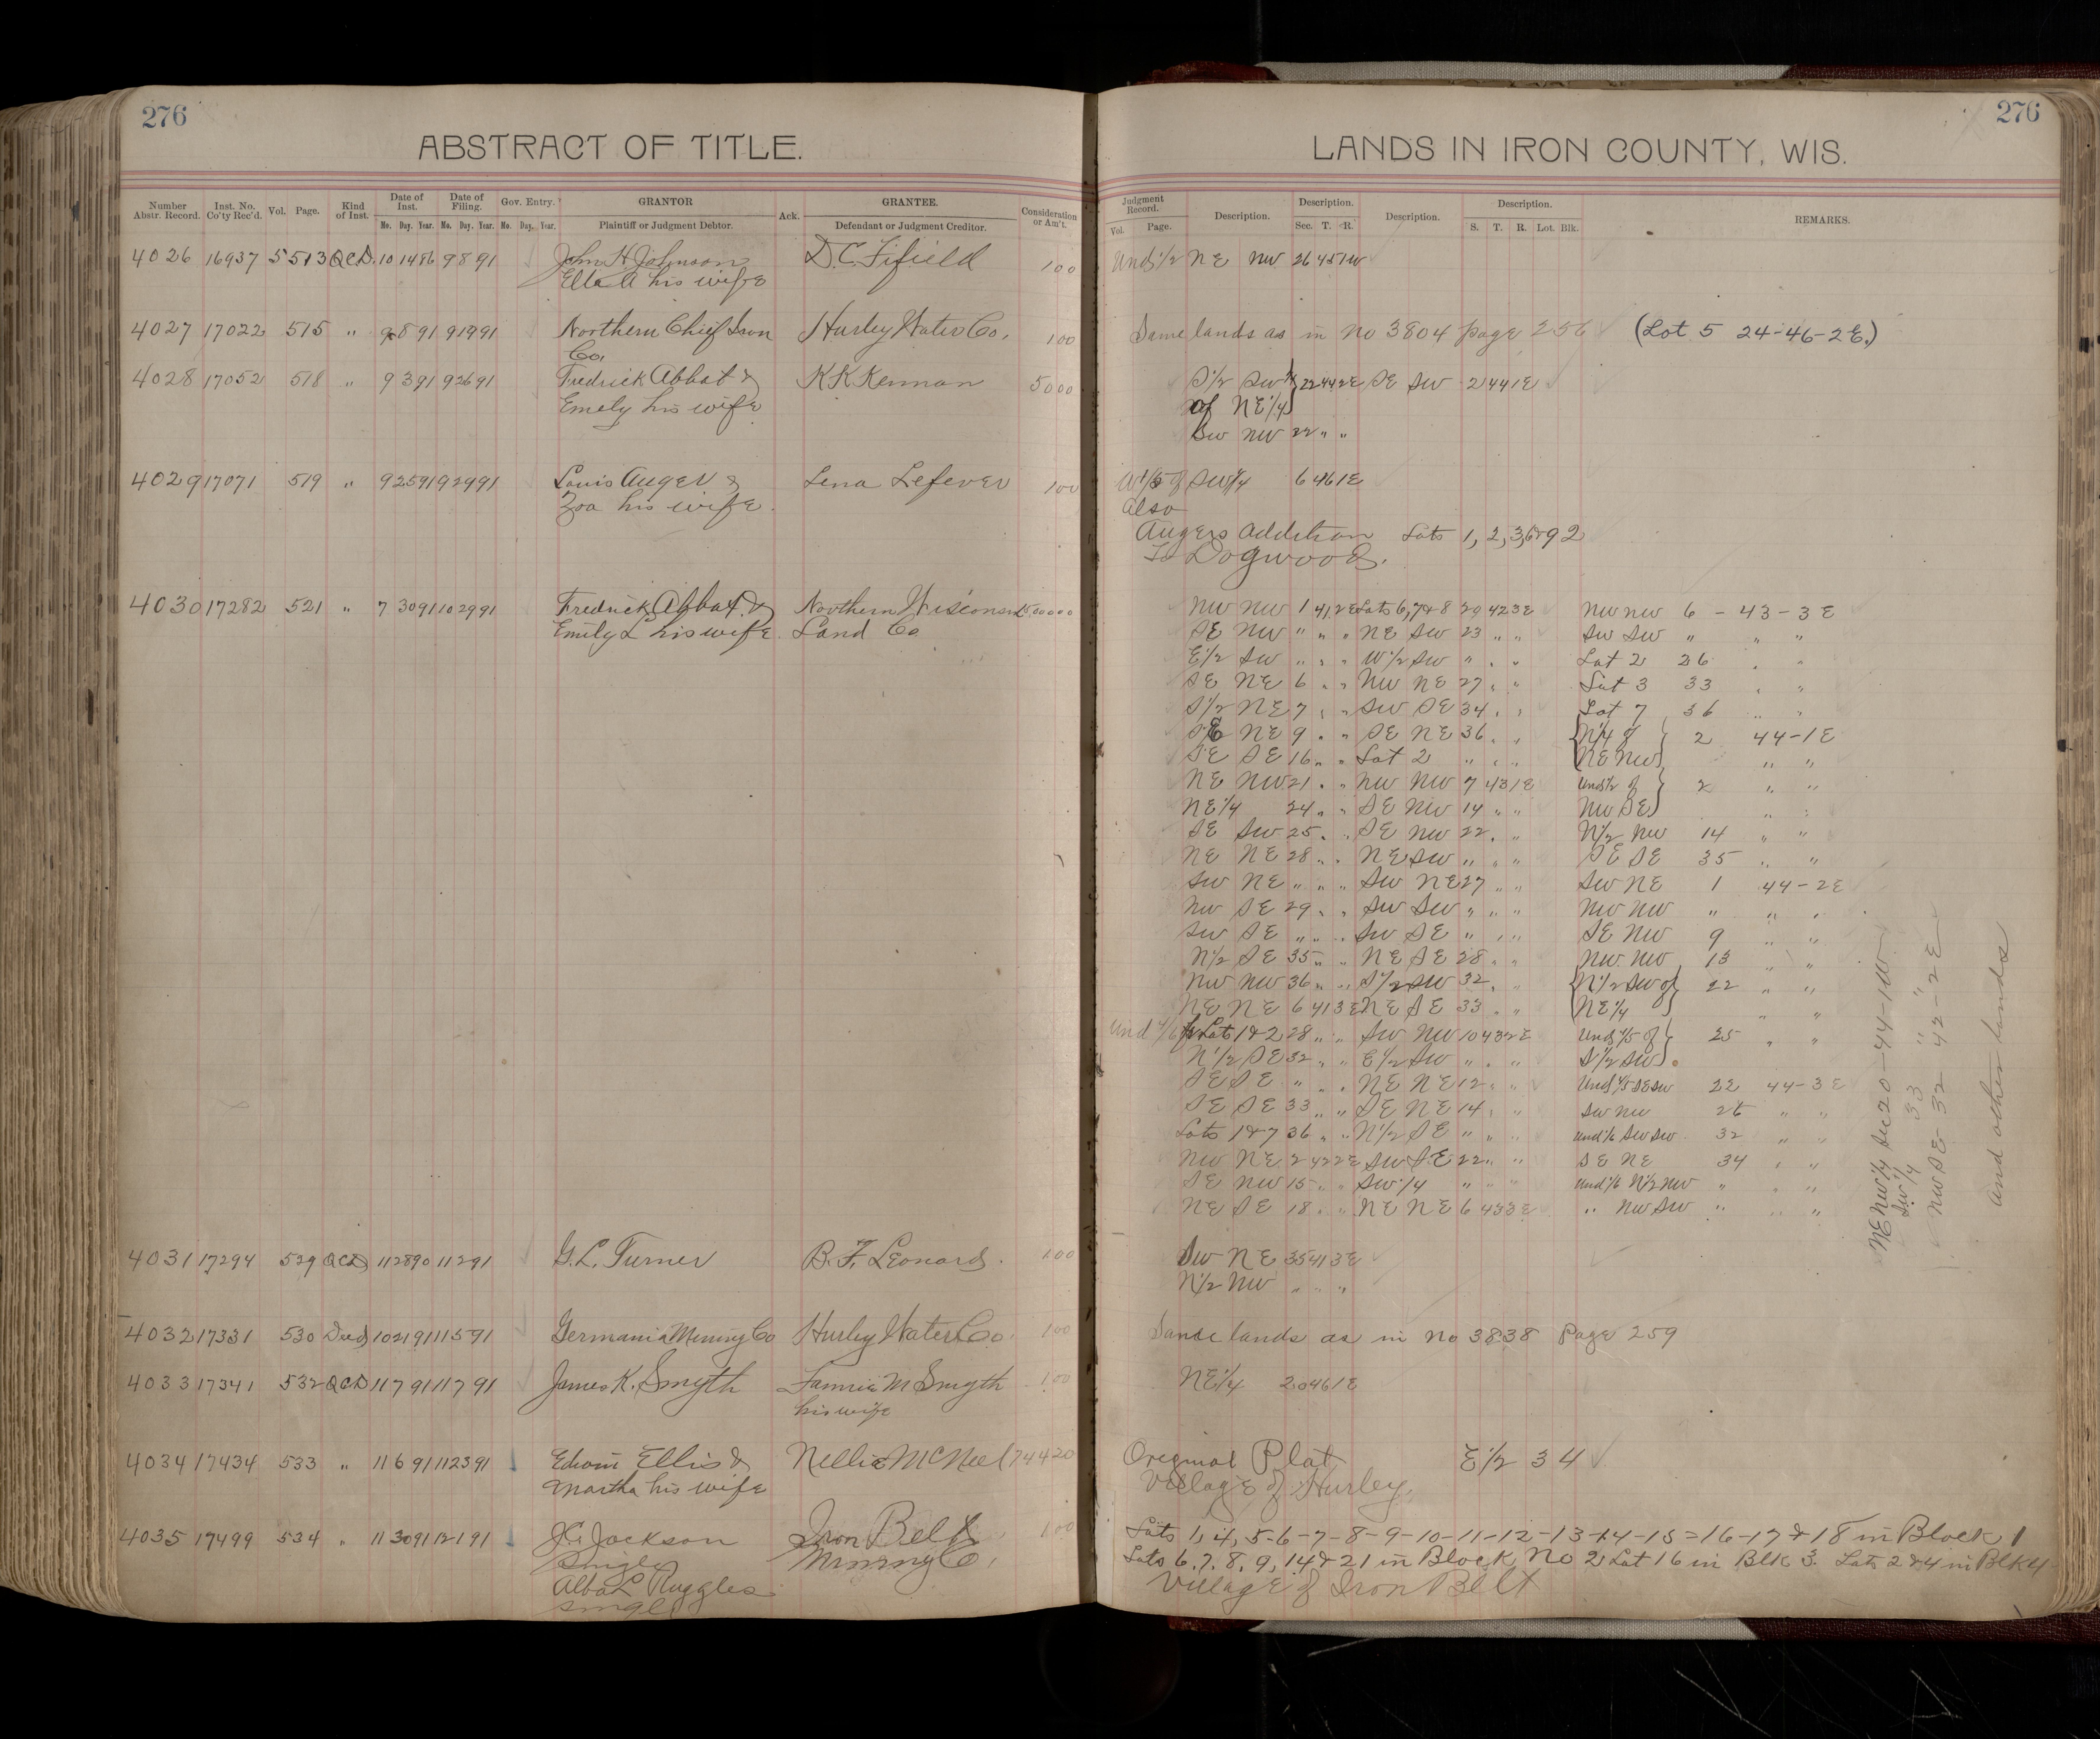 276
ABSTRACT OF TITLE.
Number Abstr. Record. Inst. No. Co'ty Rec'd. Vol. Page. Kind of Inst. Date of Inst. Date of Filing. Gov. Entry. GRANTOR Ack. GRANTEE. Consideration or Am't.
Mo. Day. Year. Mo. Day. Year. Mo. Day. Year. Plaintiff or Judgment Debtor. Defendant or Judgment Creditor.
4026 16937 5 513 QCD. 10 14 86 9 8 91 John H Johnson D.C. Fifield 100
Ella A his wife
4027 17022 515 " 9 8 91 9 19 91 Northern Chief Iron Hurley Water Co. 100
Co.
4028 17052 518 " 9 3 91 9 26 91 Fredrick Abbot & K K Kennan 5000
Emely his wife
4029 17071 519 " 9 25 91 9 29 91 Louis Auger & Lena Lefever 100
Zoa his wife.
4030 17282 521 " 7 30 91 10 29 91 Fredrick Abbot & Northern Wisconsin
Emily L his wife. Land Co
4031 17294 529 QCD 11 28 90 11 2 91 G.L. Turner B.F. Leonard. 100
4032 17331 530 Deed 10 21 91 11 5 91 Germania Mining Co Hurley Water Co. 100
4033 17341 532 QCD 11 7 91 11 7 91 James K. Smyth Fannie M Smyth 100
his wife
4034 17434 533 " 11 6 91 11 23 91 Edwin Ellis & Nellie McNeel 744 20
Martha his wife
4035 17499 534 " 11 30 91 12 1 91 J.C. Jackson Iron Belt 100
Single Mining Co.
Alba L Ruggles
single
276
LANDS IN IRON COUNTY, WIS.
Judgment Record. Description. Description. Description. Description. REMARKS.
Vol. Page. Sec. T. R. S. T. R. Lot. Blk.
Und 1/2 NE NW 26 45 1W
Same lands as in No 3804 page 256 (Lot 5 24-46-2E.)
S1/2 SW 1/4 } 22 44 2E SE SW 2 44 1E
of NE1/4
SW NW 22 " "
W1/5 of SW1/4 6 46 1E
Also
Augers Addition Lots 1, 2, 3, 6 & 9 2
To Dogwood.
NW NW 1 41 2E Lots 6, 7 & 8 29 42 3E NW NW 6 - 43-3E
SE NW " " " NE SW 23 " " SW SW " " "
E1/2 SW " " " W1/2 SW " " " Lot 2 26 " "
SE NE 6 " " NW NE 27 " " Lot 3 33 " "
S1/2 NE 7 " " SW SE 34 " " Lot 7 36 " "
SE NE 9 " " SE NE 36 " " {N1/4 of } 2 44-1E
SE SE 16 " " Lot 2 " " " NE NW " "
NE NW 21 " " NW NW 7 43 1E Und 1/2 of } 2 " "
NE1/4 24 " " SE NW 14 " " NW SE " "
SE SW 25 " " SE NW 22 " " N1/2 NW 14 " "
NE NE 28 " " NE SW " " " SE SE 35 " "
SW NE " " " SW NE 27 " " SW NE 1 44-2E
NW SE 29 " " SW SW " " " NW NW " " "
SW SE " " " SW SE " " " SE NW 9 " "
N1/2 SE 35 " " NE SE 28 " " NW NW 13 " "
NW NW 36 " " S1/2 SW 32 " " {N1/2 SW of} 22 " "
NE NE 6 41 3E NE SE 33 " " NE1/4 " "
Lots 1 & 2 28 " " SW NW 10 43 2E Und 1/5 of } 25 " "
N1/2 SE 32 " " E1/2 SW " " " S1/2 SW
SE SE " " " NE NE 12 " " Und 1/5 SE SW 22 44-3E
SE SE 33 " " SE NE 14 " " SW NW 26 " "
Lots 1 & 7 36 " " N1/2 SE " " " Und 1/6 SW SW 32 " "
NW NE 2 42 2E SW SE 22 " " SE NE 34 " "
SE NW 15 " " SW 1/4 " " " Und 1/6 N1/2 NW " " "
NE SE 18 " " NE NE 6 43 3E " NW SW " " "
NE NW 1/4 Sec 20-44-1W
SW 1/4 33 "
NW SE 32 42-2E
and other lands
SW NE 35 41 3E
N1/2 NW " " "
Same lands as in No 3838 Page 259
NE1/4 20 46 1E
Original Plat E1/2 3 4
Village of Hurley
Lots 1, 4, 5-6-7-8-9-10-11-12-13-14-15-16-17 & 18 in Block 1
Lots 6, 7, 8, 9, 14 & 21 in Block No 2 Lot 16 in Blk 3. Lots 2 & 4 in Blk 4
Village of Iron Belt